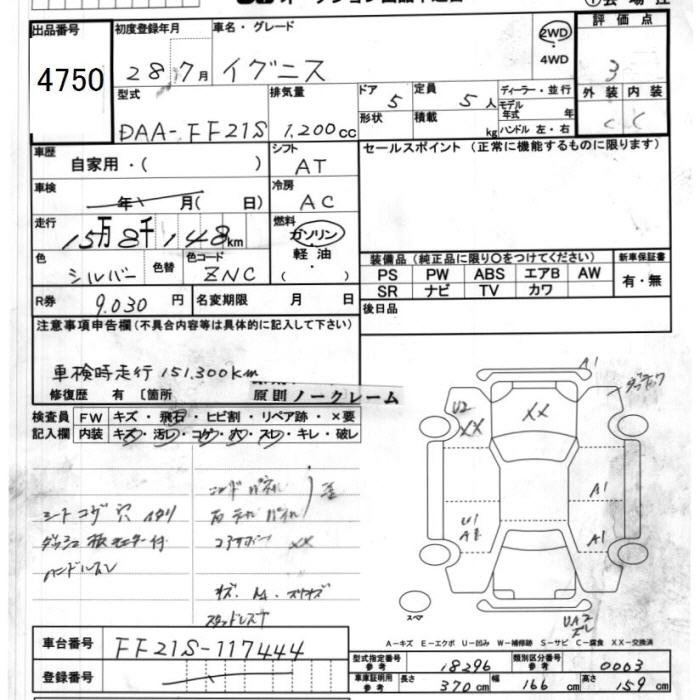 出品番号
4750
初度登録年月
28 7月
車名・グレード
イグニス
2WD
4WD
評価点
3
型式
DAA-FF21S
排気量
1,200cc
ドア
5
定員
5人
形状
積載
kg
ディーラー・並行
モデル年式 年
ハンドル 左・右
外装 内装
C C
車歴
自家用・( )
シフト
AT
車検
年 月( 日)
冷房
AC
走行
15万8千148km
燃料
ガソリン・
軽油
( )
色
シルバー
色替
色コード
ZNC
R券
9,030円
名変期限 月 日
セールスポイント(正常に機能するものに限ります)
装備品(純正品に限り○をつけてください)
PS PW ABS エアB AW
SR ナビ TV カワ
新車保証書
有・無
後日品
注意事項申告欄(不具合内容等は具体的に記入して下さい)
車検時走行151,300km
修復歴 有 〔箇所
原則ノークレーム
検査員
記入欄
FW キズ・飛石・ヒビ割・リペア跡・×要
内装 キズ・汚レ・コゲ・穴・スレ・キレ・破レ
シート コゲ 穴
ハンドルスレ
XX
スタッドレス
A1
U2
XX
XX
A1
U1
A1
スペア
A-キズ E-エクボ U-凹み W-補修跡 S-サビ C-腐食 XX-交換済
車台番号
FF21S-117444
登録番号
型式指定番号
参考
18296
類別区分番号
参考
0003
車庫証明用
参考
長さ 370cm
幅 166cm
高さ 159cm